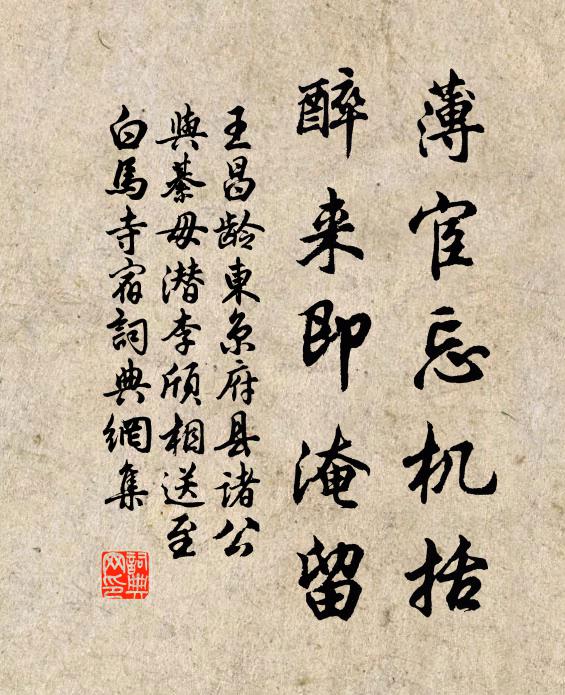 薄宦忘机括
醉来即淹留
王昌龄東京府县诸公
與綦毋潜李颀相送至
白馬寺宿詞典網集
詞典
网印